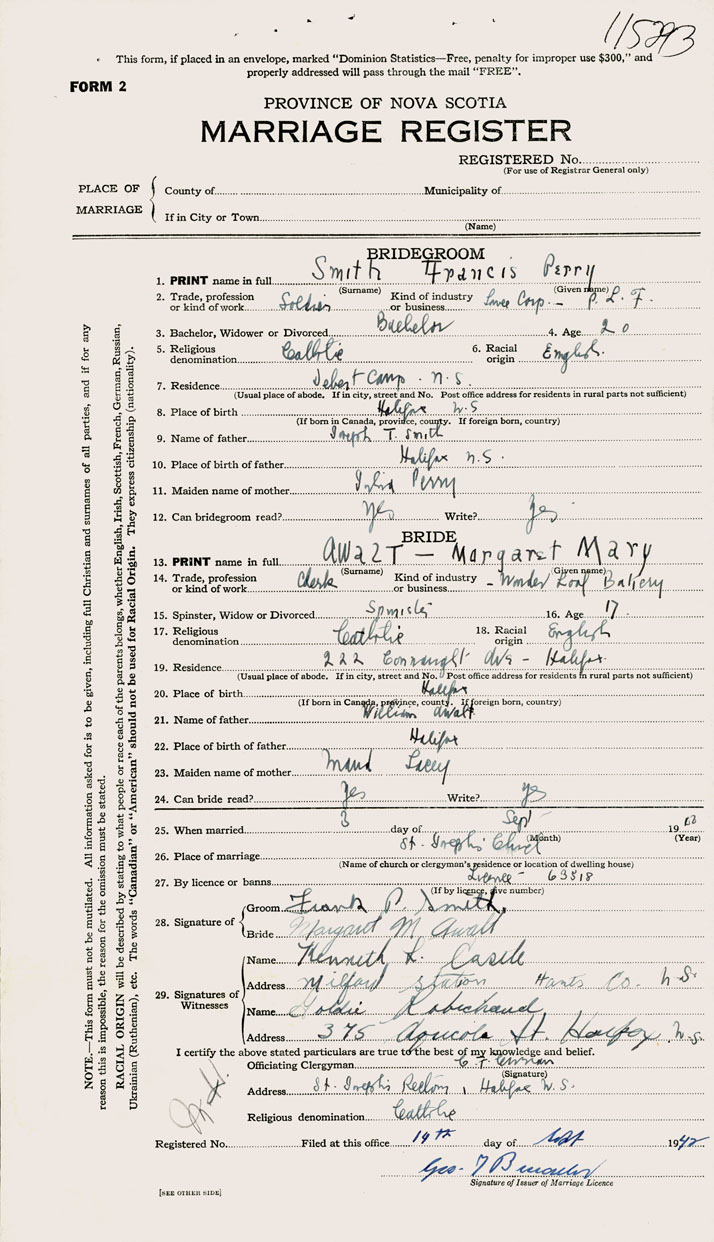 115293
This form, if placed in an envelope, marked "Dominion Statistics—Free, penalty for improper use $300," and
properly addressed will pass through the mail "FREE".
FORM 2
PROVINCE OF NOVA SCOTIA
MARRIAGE REGISTER
REGISTERED No.
(For use of Registrar General only)
PLACE OF MARRIAGE
County of Municipality of
If in City or Town
(Name)
BRIDEGROOM
1. PRINT name in full Smith Francis Perry
(Surname) (Given name)
2. Trade, profession or kind of work Soldier Kind of industry or business Corp. —
3. Bachelor, Widower or Divorced Bachelor 4. Age 20
5. Religious denomination Catholic 6. Racial origin English.
7. Residence Debert Camp. N.S.
(Usual place of abode. If in city, street and No. Post office address for residents in rural parts not sufficient)
8. Place of birth Halifax N.S
(If born in Canada, province, county. If foreign born, country)
9. Name of father Joseph T. Smith
10. Place of birth of father Halifax N.S.
11. Maiden name of mother Perry
12. Can bridegroom read? Yes Write? Yes
BRIDE
13. PRINT name in full AWALT — Margaret Mary
(Surname) (Given name)
14. Trade, profession or kind of work Clerk Kind of industry or business - Wonder Loaf Bakery
15. Spinster, Widow or Divorced Spinster 16. Age 17
17. Religious denomination Catholic 18. Racial origin English
19. Residence 222 Connaught Ave - Halifax.
(Usual place of abode. If in city, street and No. Post office address for residents in rural parts not sufficient)
20. Place of birth Halifax
(If born in Canada, province, county. If foreign born, country)
21. Name of father William Awalt
22. Place of birth of father Halifax
23. Maiden name of mother Maud Lacey
24. Can bride read? Yes Write? Yes
25. When married 3 day of Sept 19
(Month) (Year)
26. Place of marriage St. Joseph's Church
(Name of church or clergyman's residence or location of dwelling house)
27. By licence or banns Licence - 63818
(If by licence, give number)
28. Signature of
Groom Frank P. Smith,
Bride Margaret M Awalt
29. Signatures of Witnesses
Name Kenneth L. Castle
Address Milford Station Hants Co. N.S.
Name Goldie Robichaud
Address 375 Agricola St. Halifax, N.S.
I certify the above stated particulars are true to the best of my knowledge and belief.
Officiating Clergyman
(Signature)
Address St. Joseph's Rectory, Halifax N.S.
Religious denomination Catholic
Registered No. Filed at this office 14th day of Sept 1942
Geo.
Signature of Issuer of Marriage Licence
[SEE OTHER SIDE]
NOTE.—This form must not be mutilated. All information asked for is to be given, including full Christian and surnames of all parties, and if for any
reason this is impossible, the reason for the omission must be stated.
RACIAL ORIGIN will be described by stating to what people or race each of the parents belongs, whether English, Irish, Scottish, French, German, Russian,
Ukrainian (Ruthenian), etc. The words "Canadian" or "American" should not be used for Racial Origin. They express citizenship (nationality).